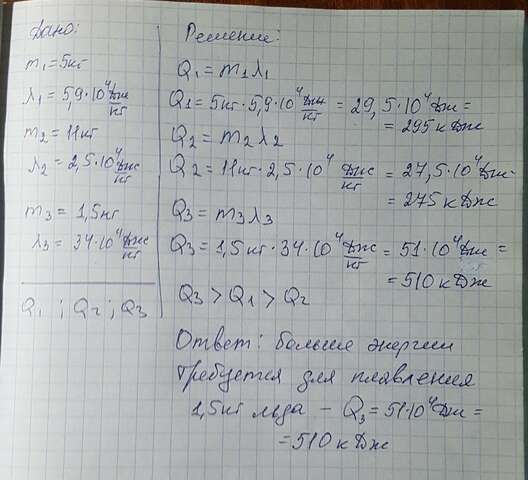 Дано:
m₁=5кг
λ₁=5,9·10⁴ Дж/кг
m₂=11кг
λ₂=2,5·10⁴ Дж/кг
m₃=1,5кг
λ₃=34·10⁴ Дж/кг
Q₁; Q₂; Q₃
Решение:
Q₁=m₁λ₁
Q₁=5кг·5,9·10⁴ Дж/кг=29,5·10⁴Дж=
=295кДж
Q₂=m₂λ₂
Q₂=11кг·2,5·10⁴ Дж/кг=27,5·10⁴Дж=
=275кДж
Q₃=m₃λ₃
Q₃=1,5кг·34·10⁴ Дж/кг=51·10⁴Дж=
=510кДж
Q₃>Q₁>Q₂
Ответ: больше энергии
требуется для плавления
1,5кг льда – Q₃=51·10⁴Дж=
=510кДж